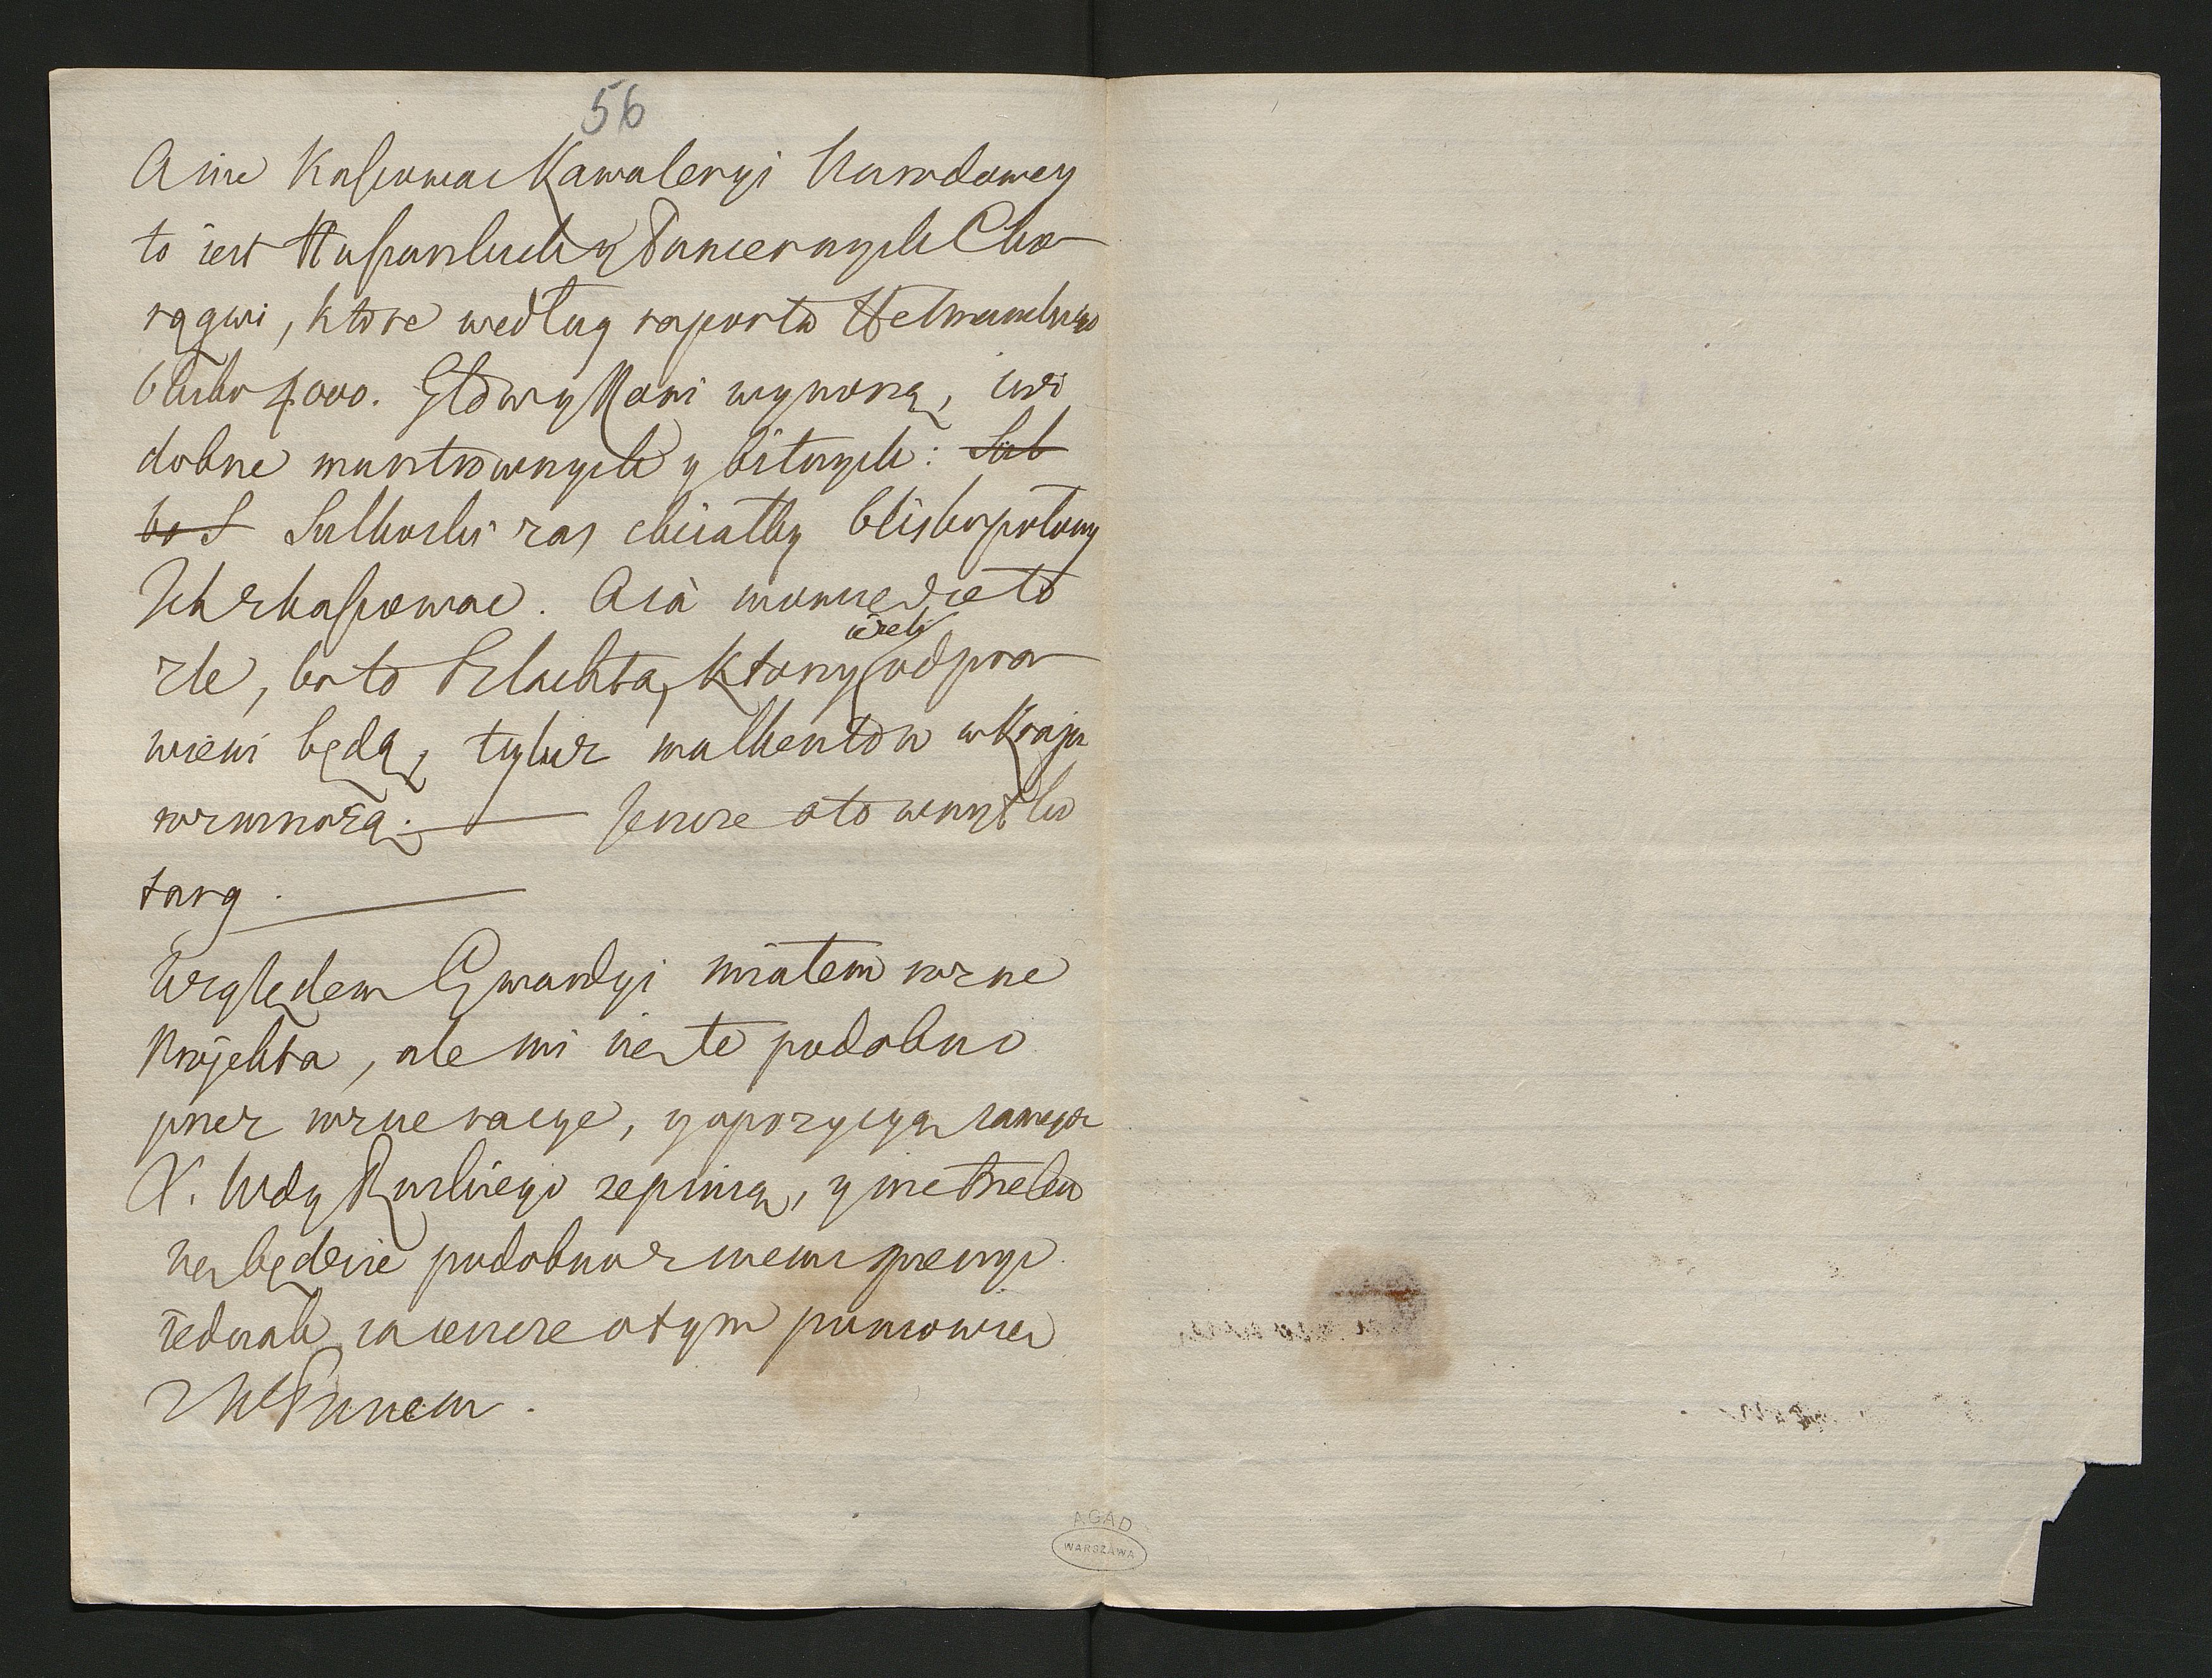 56
A nie Kassować Kawaleryi Narodowey
to iest Hussarskich y Pancernych Cho-
rągwi, ktore według raportu Hetmanskiego
blisko 4000. Głowy Koni wynoszą,
dobne mustrownych y bitnych: Sul
ko S Sulkoski zas chciałby blisko połowy
Ich zkassować. A ia mowię że to
zle, bo to Szlachta, Ktorzy ieżeli odpra-
wieni będą, tyluż malkentow w Kraju
rozmnożą. Jeszcze o to wszystko
targ.
Względem Gwardyi miałem rozne
Projekta, ale mi się te podobno
przez rozne racye, y opozycyą samego
X. Wdy Ruskiego zepsuią, y nie trzeba
się będzie podobno z niemi spieszyć
iednak ia ieszcze o tym pomowię
z Nim Panem.
AGAD
WARSZAWA